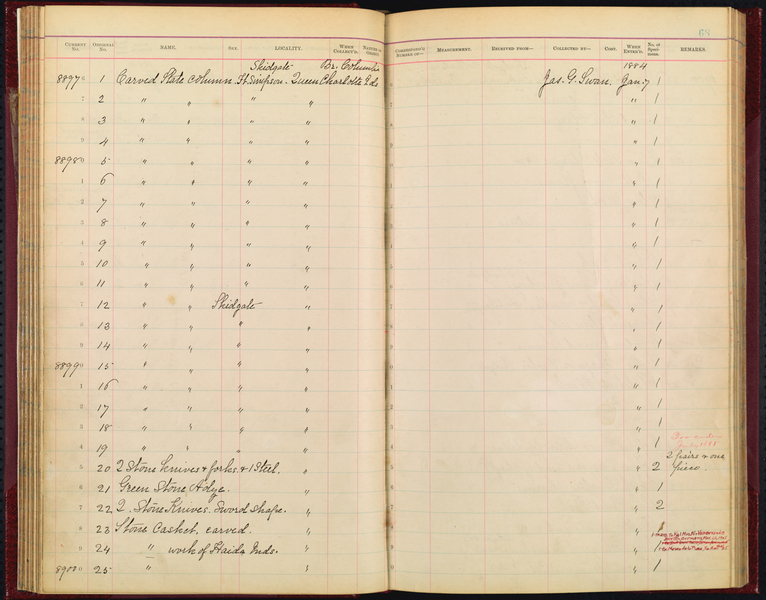 64
CURRENT No. ORIGINAL No. NAME. SEX. LOCALITY. WHEN COLLECT'D. NATURE OF OBJECT. CORRESPOND'G NUMBER OF— MEASUREMENT. RECEIVED FROM— COLLECTED BY— COST. WHEN ENTER'D. No. of Specimens. REMARKS.
Skidgate Br. Columbia 1884
88976 1 Carved Slate Column. Ft. Simpson. Queen Charlotte Ids Jas. G. Swan. Jan. 7 1
7 2 " " " " " 1
8 3 " " " " " 1
9 4 " " " " " 1
88980 5 " " " " " 1
1 6 " " " " " 1
2 7 " " " " " 1
3 8 " " " " " 1
4 9 " " " " " 1
5 10 " " " " " 1
6 11 " " " " " 1
7 12 " " Skidgate " " 1
8 13 " " " " " 1
9 14 " " " " " 1
88990 15 " " " " " 1
1 16 " " " " " 1
2 17 " " " " " 1
3 18 " " " " " 1
4 19 " " " " " 1
5 20 2 Stone knives & forks, & 1 Steel. " " 2 2 pairs & one piece.
6 21 Green Stone Adze. " " 1
7 22 2 Stone Knives. Sword shape. " " 2
8 23 Stone Casket, carved. " " 1
9 24 " work of Haida Inds. " " 1
89000 25 " " " 1